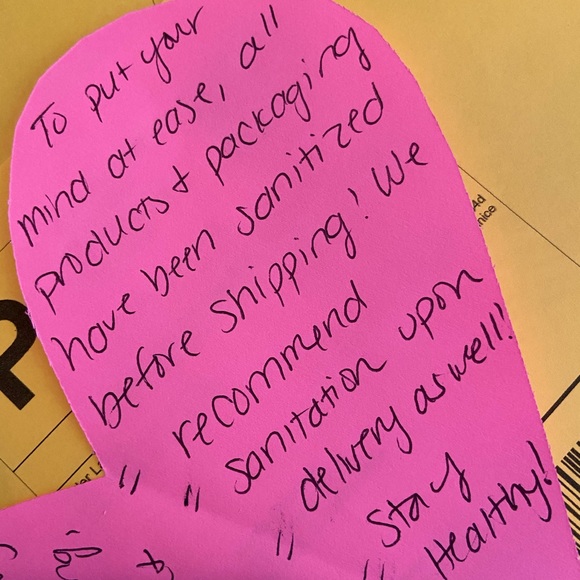 To put your
mind at ease, all
products + packaging
have been sanitized
before shipping! We
recommend
sanitation upon
delivery as well!
Stay
Healthy!
P